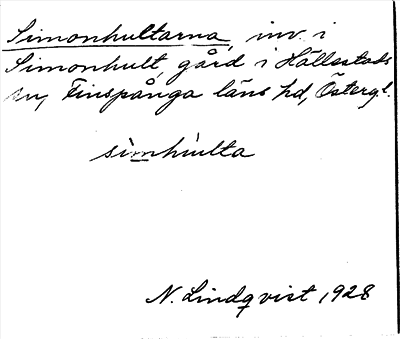 Simonhultarna, inv. i
Simonhult, gård i Hällestads
sn, Finspånga läns hd, Östergl.
sìmhùlta
N. Lindqvist 1928